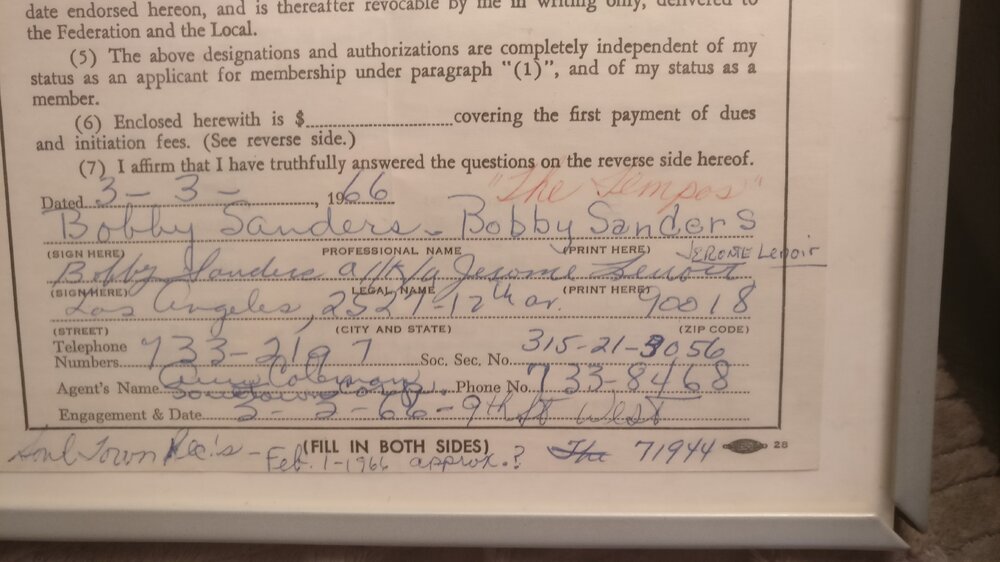 date endorsed hereon, and is thereafter revocable by me in writing only, delivered to
the Federation and the Local.
(5) The above designations and authorizations are completely independent of my
status as an applicant for membership under paragraph "(1)", and of my status as a
member.
(6) Enclosed herewith is $ covering the first payment of dues
and initiation fees. (See reverse side.)
(7) I affirm that I have truthfully answered the questions on the reverse side hereof.
"The Tempos"
Dated 3-3-, 1966
Bobby Sanders - Bobby Sanders
(SIGN HERE) PROFESSIONAL NAME (PRINT HERE) JEROME Lenoir
Bobby Sanders a/k/a Jerome Lenoir
(SIGN HERE) LEGAL NAME (PRINT HERE)
Los Angeles, 2527-12th av. 90018
(STREET) (CITY AND STATE) (ZIP CODE)
Telephone
Numbers 733-2197 Soc. Sec. No. 315-21-3056
Agent's Name Phone No. 733-8468
Engagement & Date 3-3-66-9th st West
Soul Town Rec.'s - (FILL IN BOTH SIDES)
Feb. 1-1966 approx.? The 71944 28